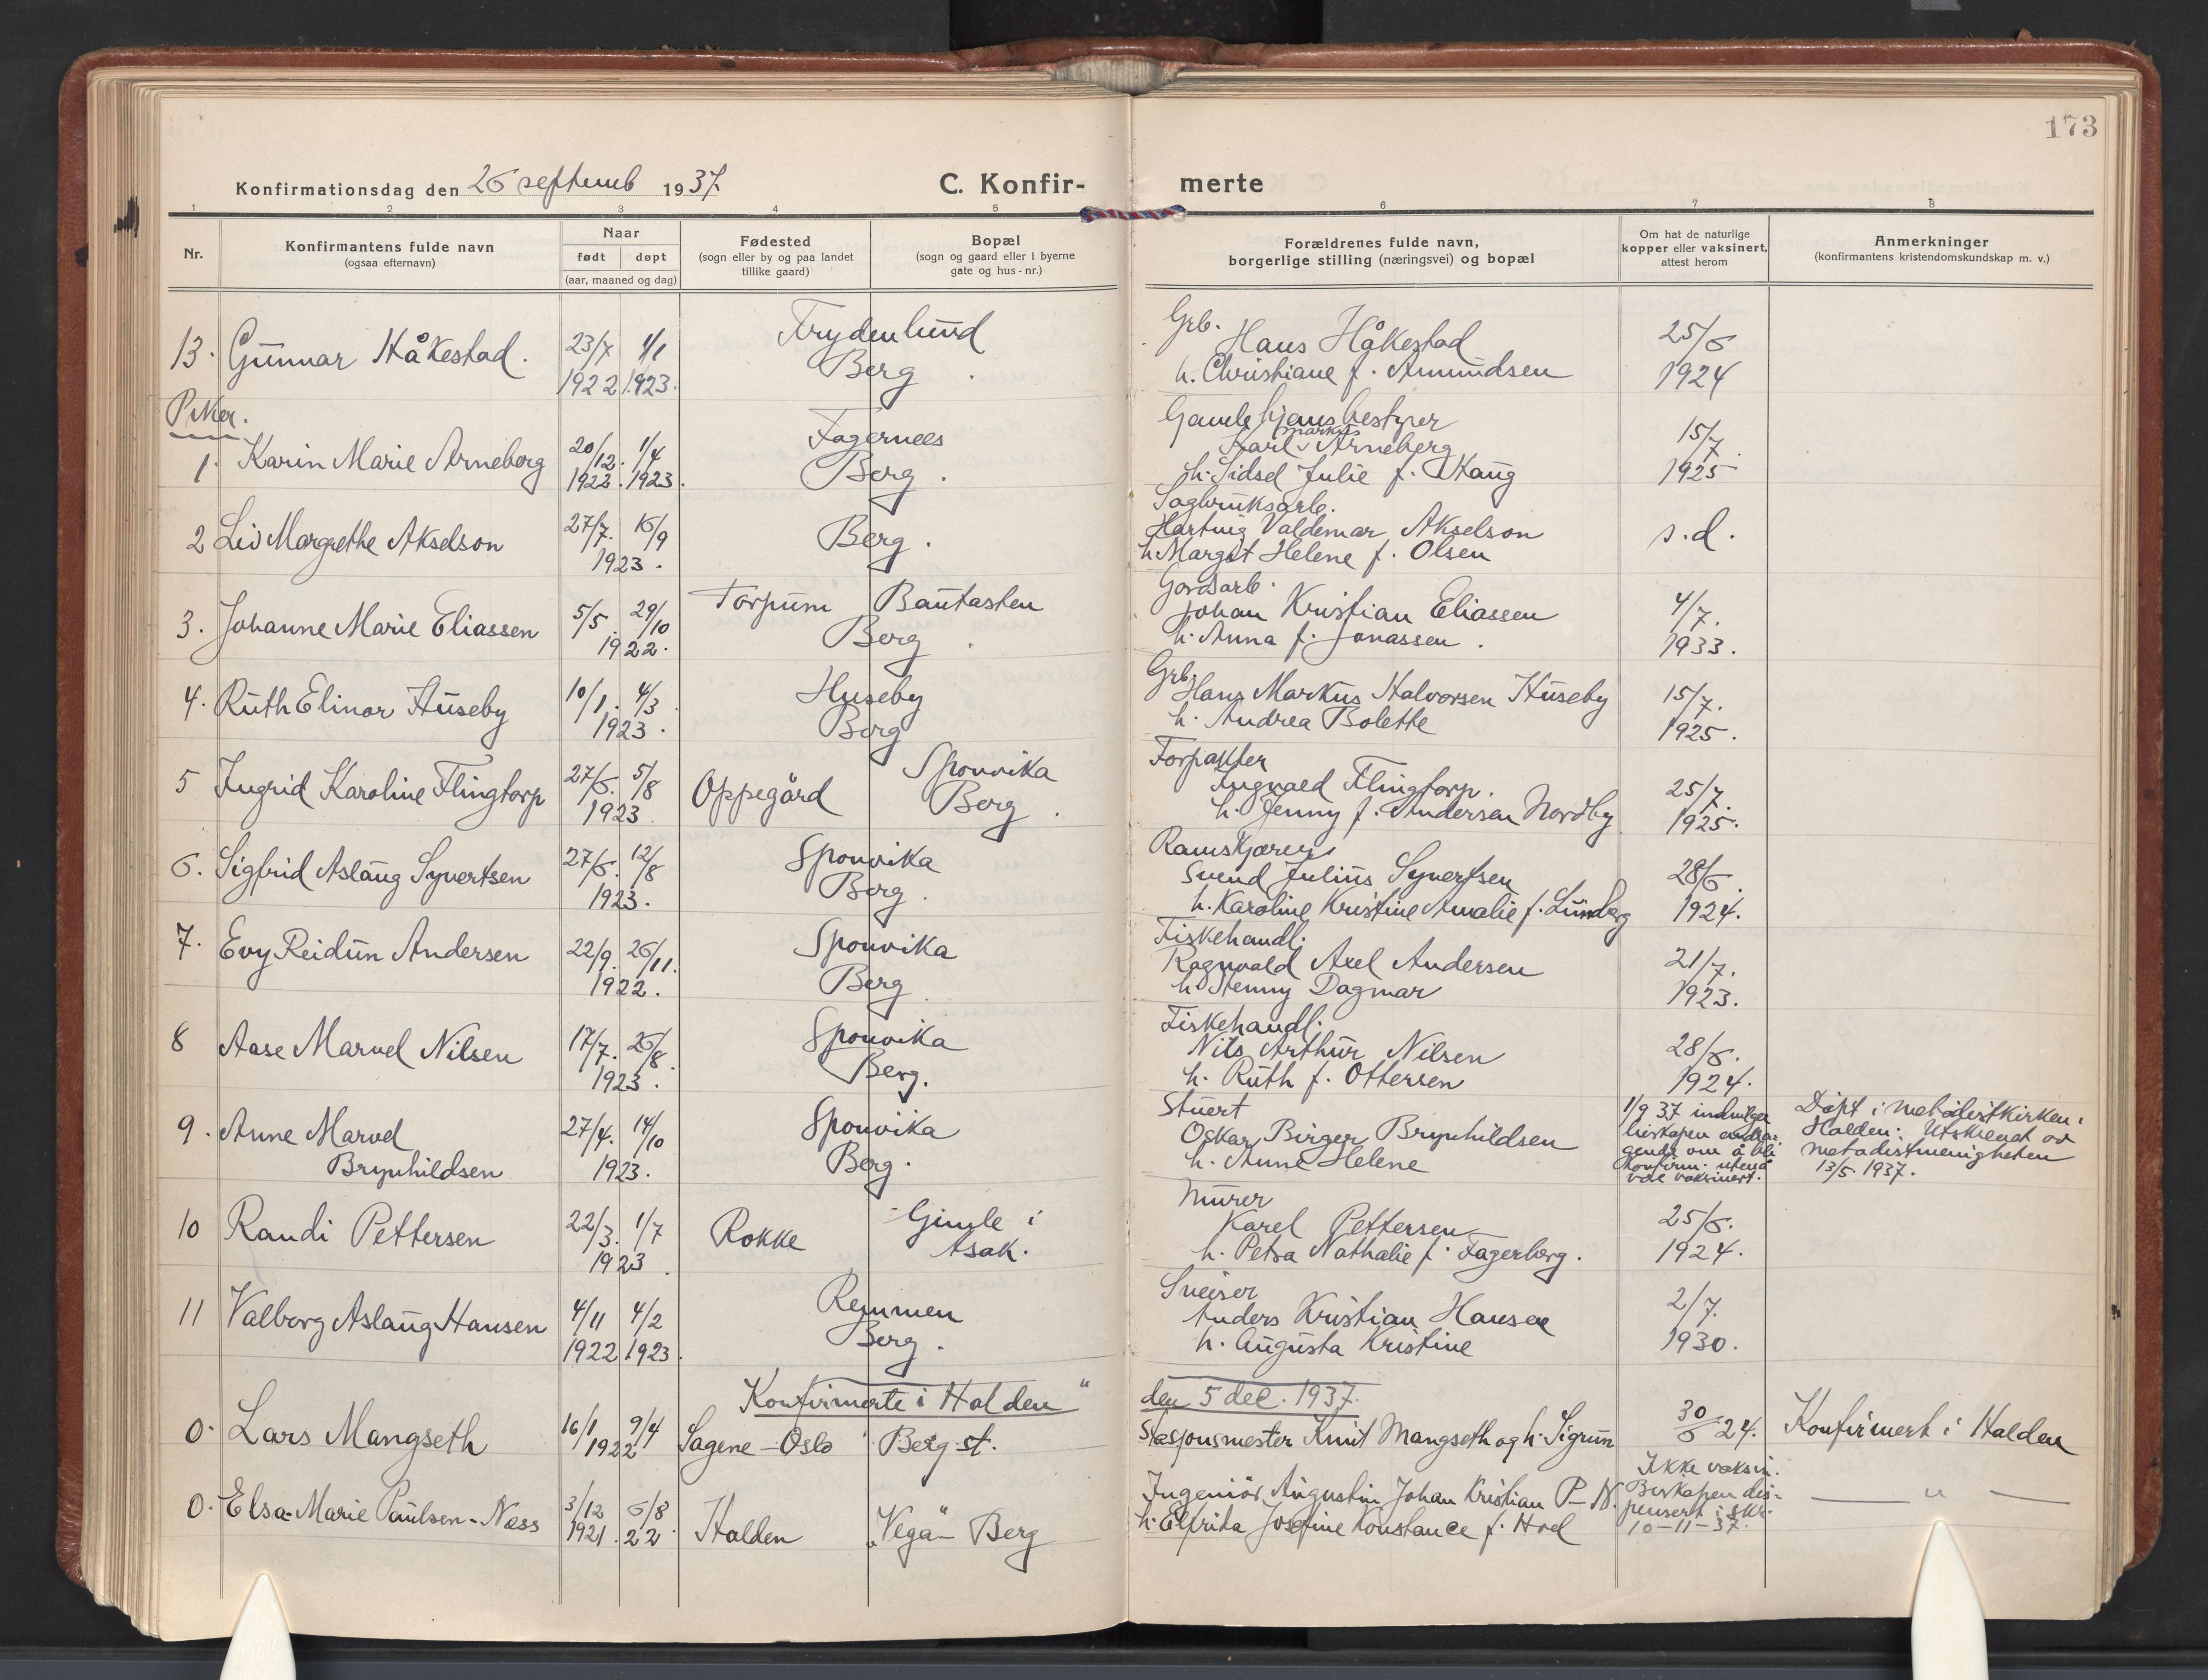 173
Konfirmationsdag den 26 septemb 1937
C. Konfir-
merte
1 2 3 4 5 6 7 8
Nr.
Konfirmantens fulde navn
(ogsaa efternavn)
Naar
født døpt
(aar, maaned og dag)
Fødested
(sogn eller by og paa landet
tillike gaard)
Bopæl
(sogn og gaard eller i byerne
gate og hus-nr.)
Forældrenes fulde navn,
borgerlige stilling (næringsvei) og bopæl
Om hat de naturlige
kopper eller vaksinert,
attest herom
Anmerkninger
(konfirmantens kristendomskundskap m. v.)
13. Gunnar Håkestad. 23/7 1922 1/1 1923.
Frydenlund
Berg.
Grb.
Hans Håkestad
h. Christiane f. Amundsen
25/6
1924
Piker.
1. Karin Marie Arneberg 20/12. 1922. 1/4 1923.
Fagernees
Berg.
Gamlehjemsbestyrer
Karl Markus Arneberg
h. Sidsel Julie f. Skaug
15/7.
1925
2 Liv Margrethe Akselson 27/7. 16/9
1923.
Berg.
Sagbruksarb.
Hartvig Valdemar Akselson
h. Margit Helene f. Olsen
s.d.
3. Johanne Marie Eliassen 5/5. 29/10
1922.
Torpum Bautasten
Berg.
Gårdsarb.
Johan Kristian Eliassen
h. Anna f. Jonassen.
4/7.
1933.
4. Ruth Elinor Huseby 10/1. 4/3.
1923.
Huseby
Berg
Grb.
Hans Markus Halvorsen Huseby
h. Andrea Bolette
15/7.
1925.
5 Ingrid Karoline Flingtorp 27/6. 5/8
1923.
Oppegård Sponvika
Berg.
Forpakter
Ingvald Flingtorp.
h. Jenny f. Andersen Nordby
25/7.
1925.
6. Sigfrid Aslaug Syvertsen 27/6. 12/8
1923.
Sponvika
Berg.
Svend Julius Syvertsen
h. Karoline Kristine Amalie f. Lundberg
28/6.
1924.
7. Evy Reidun Andersen 22/9. 26/11.
1922.
Sponvika
Berg.
Fiskehandl.
Ragnvald Axel Andersen
h. Henny Dagmar
21/7.
1923.
8 Aase Marvel Nilsen 17/7. 26/8.
1923.
Sponvika
Berg.
Fiskehandl.
Nils Arthur Nilsen
h. Ruth f. Ottersen
28/6.
1924.
9. Anne Marvel
Brynhildsen
27/4. 14/10
1923.
Sponvika
Berg.
Stuert
Oskar Birger Brynhildsen
h. Anne Helene
1/9 37 indvilger
biskopen andra-
gende om å bli
konfirm. uten å
være vaksinert.
Døpt i metodistkirken i
Halden. Utskrevet av
metodistmenigheten
13/5. 1937.
10 Randi Pettersen 22/3. 1/7
1923.
Rokke Gimle i
Asak.
Murer
Karel Pettersen
h. Petra Nathalie f. Fagerberg.
25/6.
1924.
11 Valborg Aslaug Hansen 4/11 1922 4/2 1923.
Remmen
Berg.
Sveiser
Anders Kristian Hansen
h. Augusta Kristine
2/7.
1930.
Konfirmerte i Halden"
den 5 dec. 1937.
0. Lars Mangseth 16/1 9/4
1922
Sagene - Oslo Berg st.
Stasjonsmester Knut Mangseth og h. Sigrun
30/6 24.
Konfirmert i Halden
0. Elsa-Marie Paulsen-Næss 3/12 1921. 6/8 22.
Halden "Vega" - Berg
Ingeniør Augustin Johan Kristian P-N.
h. Elfrida Josefine Konstance f. Hoel
Ikke vaksin.
Biskopen dis-
pensert i skr.
10-11-37.
— " —